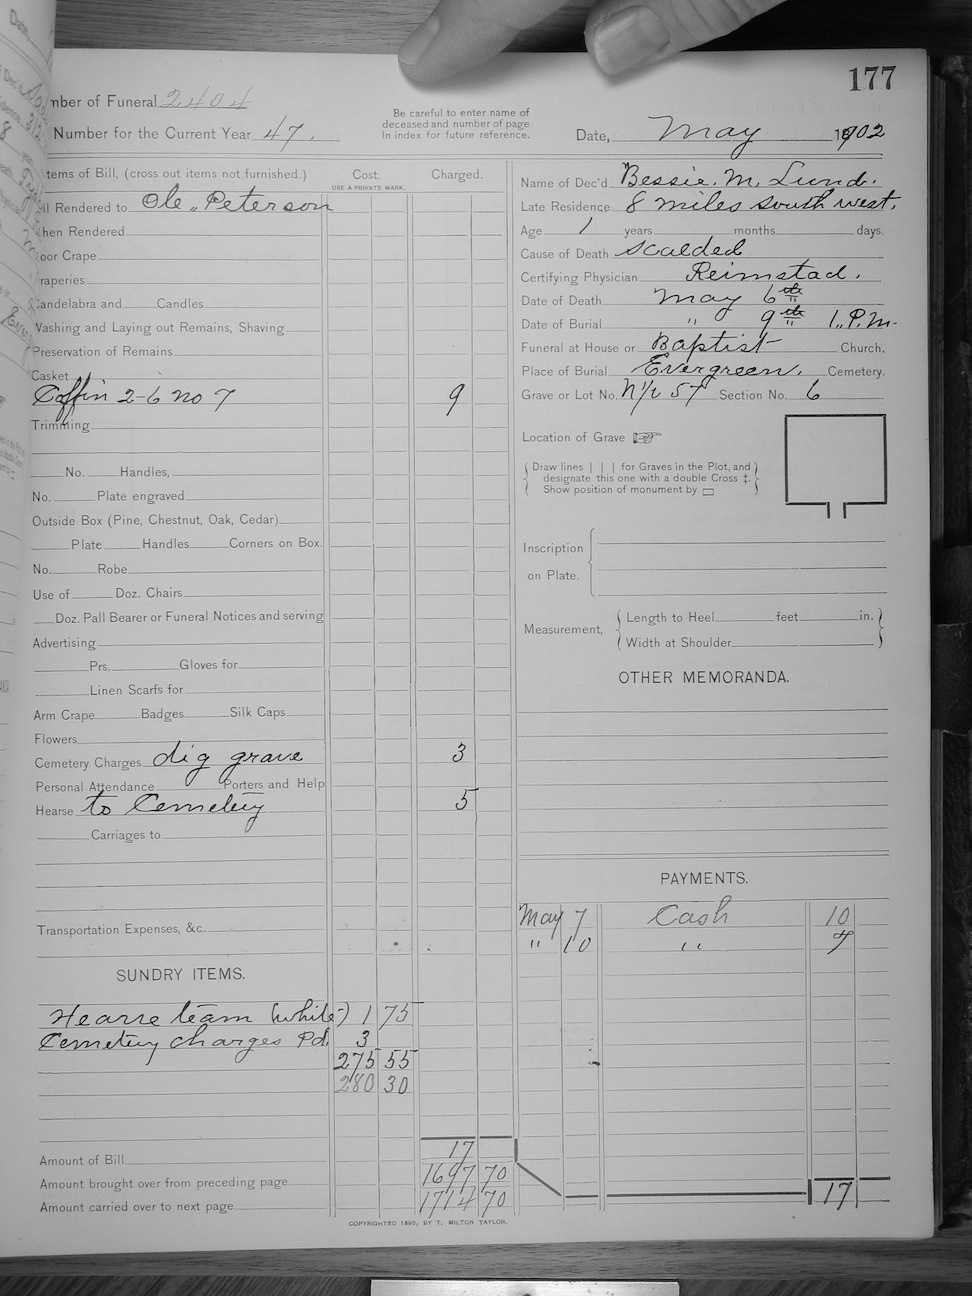 177
mber of Funeral 2404
Number for the Current Year 47.
Be careful to enter name of
deceased and number of page
in index for future reference.
Date, May 1902
tems of Bill, (cross out items not furnished.)
Cost.
USE A PRIVATE MARK.
Charged.
ll Rendered to Ole Peterson
hen Rendered
oor Crape
raperies
andelabra and Candles
Washing and Laying out Remains, Shaving
Preservation of Remains
Casket
Coffin 2-6 no 7 9
Trimming
No. Handles,
No. Plate engraved
Outside Box (Pine, Chestnut, Oak, Cedar)
Plate Handles Corners on Box.
No. Robe
Use of Doz. Chairs
Doz. Pall Bearer or Funeral Notices and serving
Advertising
Prs. Gloves for
Linen Scarfs for
Arm Crape Badges Silk Caps
Flowers
Cemetery Charges dig grave 3
Personal Attendance Porters and Help
Hearse to Cemetery 5
Carriages to
Transportation Expenses, &c.
SUNDRY ITEMS.
Hearse team (white) 1 75
Cemetery charges Pd. 3
275 55
280 30
Amount of Bill 17
Amount brought over from preceding page 1697 70
Amount carried over to next page 1714 70
Name of Dec'd Bessie. M. Lund.
Late Residence 8 miles south west.
Age 1 years months days.
Cause of Death scalded
Certifying Physician Reimstad.
Date of Death May 6th
Date of Burial " 9th 1 P.M.
Funeral at House or Baptist Church.
Place of Burial Evergreen. Cemetery.
Grave or Lot No. N½ 57 Section No. 6
Location of Grave
Draw lines | | | for Graves in the Plot, and
designate this one with a double Cross ‡.
Show position of monument by ▭
Inscription
on Plate.
Measurement,
Length to Heel feet in.
Width at Shoulder
OTHER MEMORANDA.
PAYMENTS.
May 7 Cash 10
" 10 " 7
17
COPYRIGHTED 1890, BY T. MILTON TAYLOR.